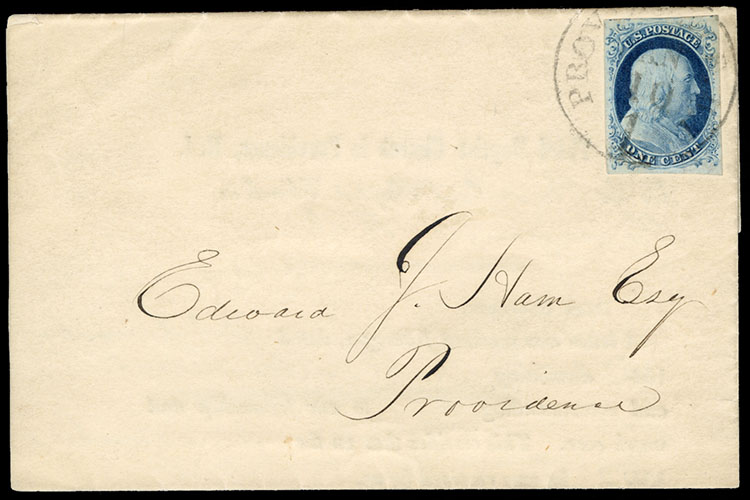 PROV
U.S. POSTAGE
10
ONE CENT
Edward J. Ham Esq
Providence